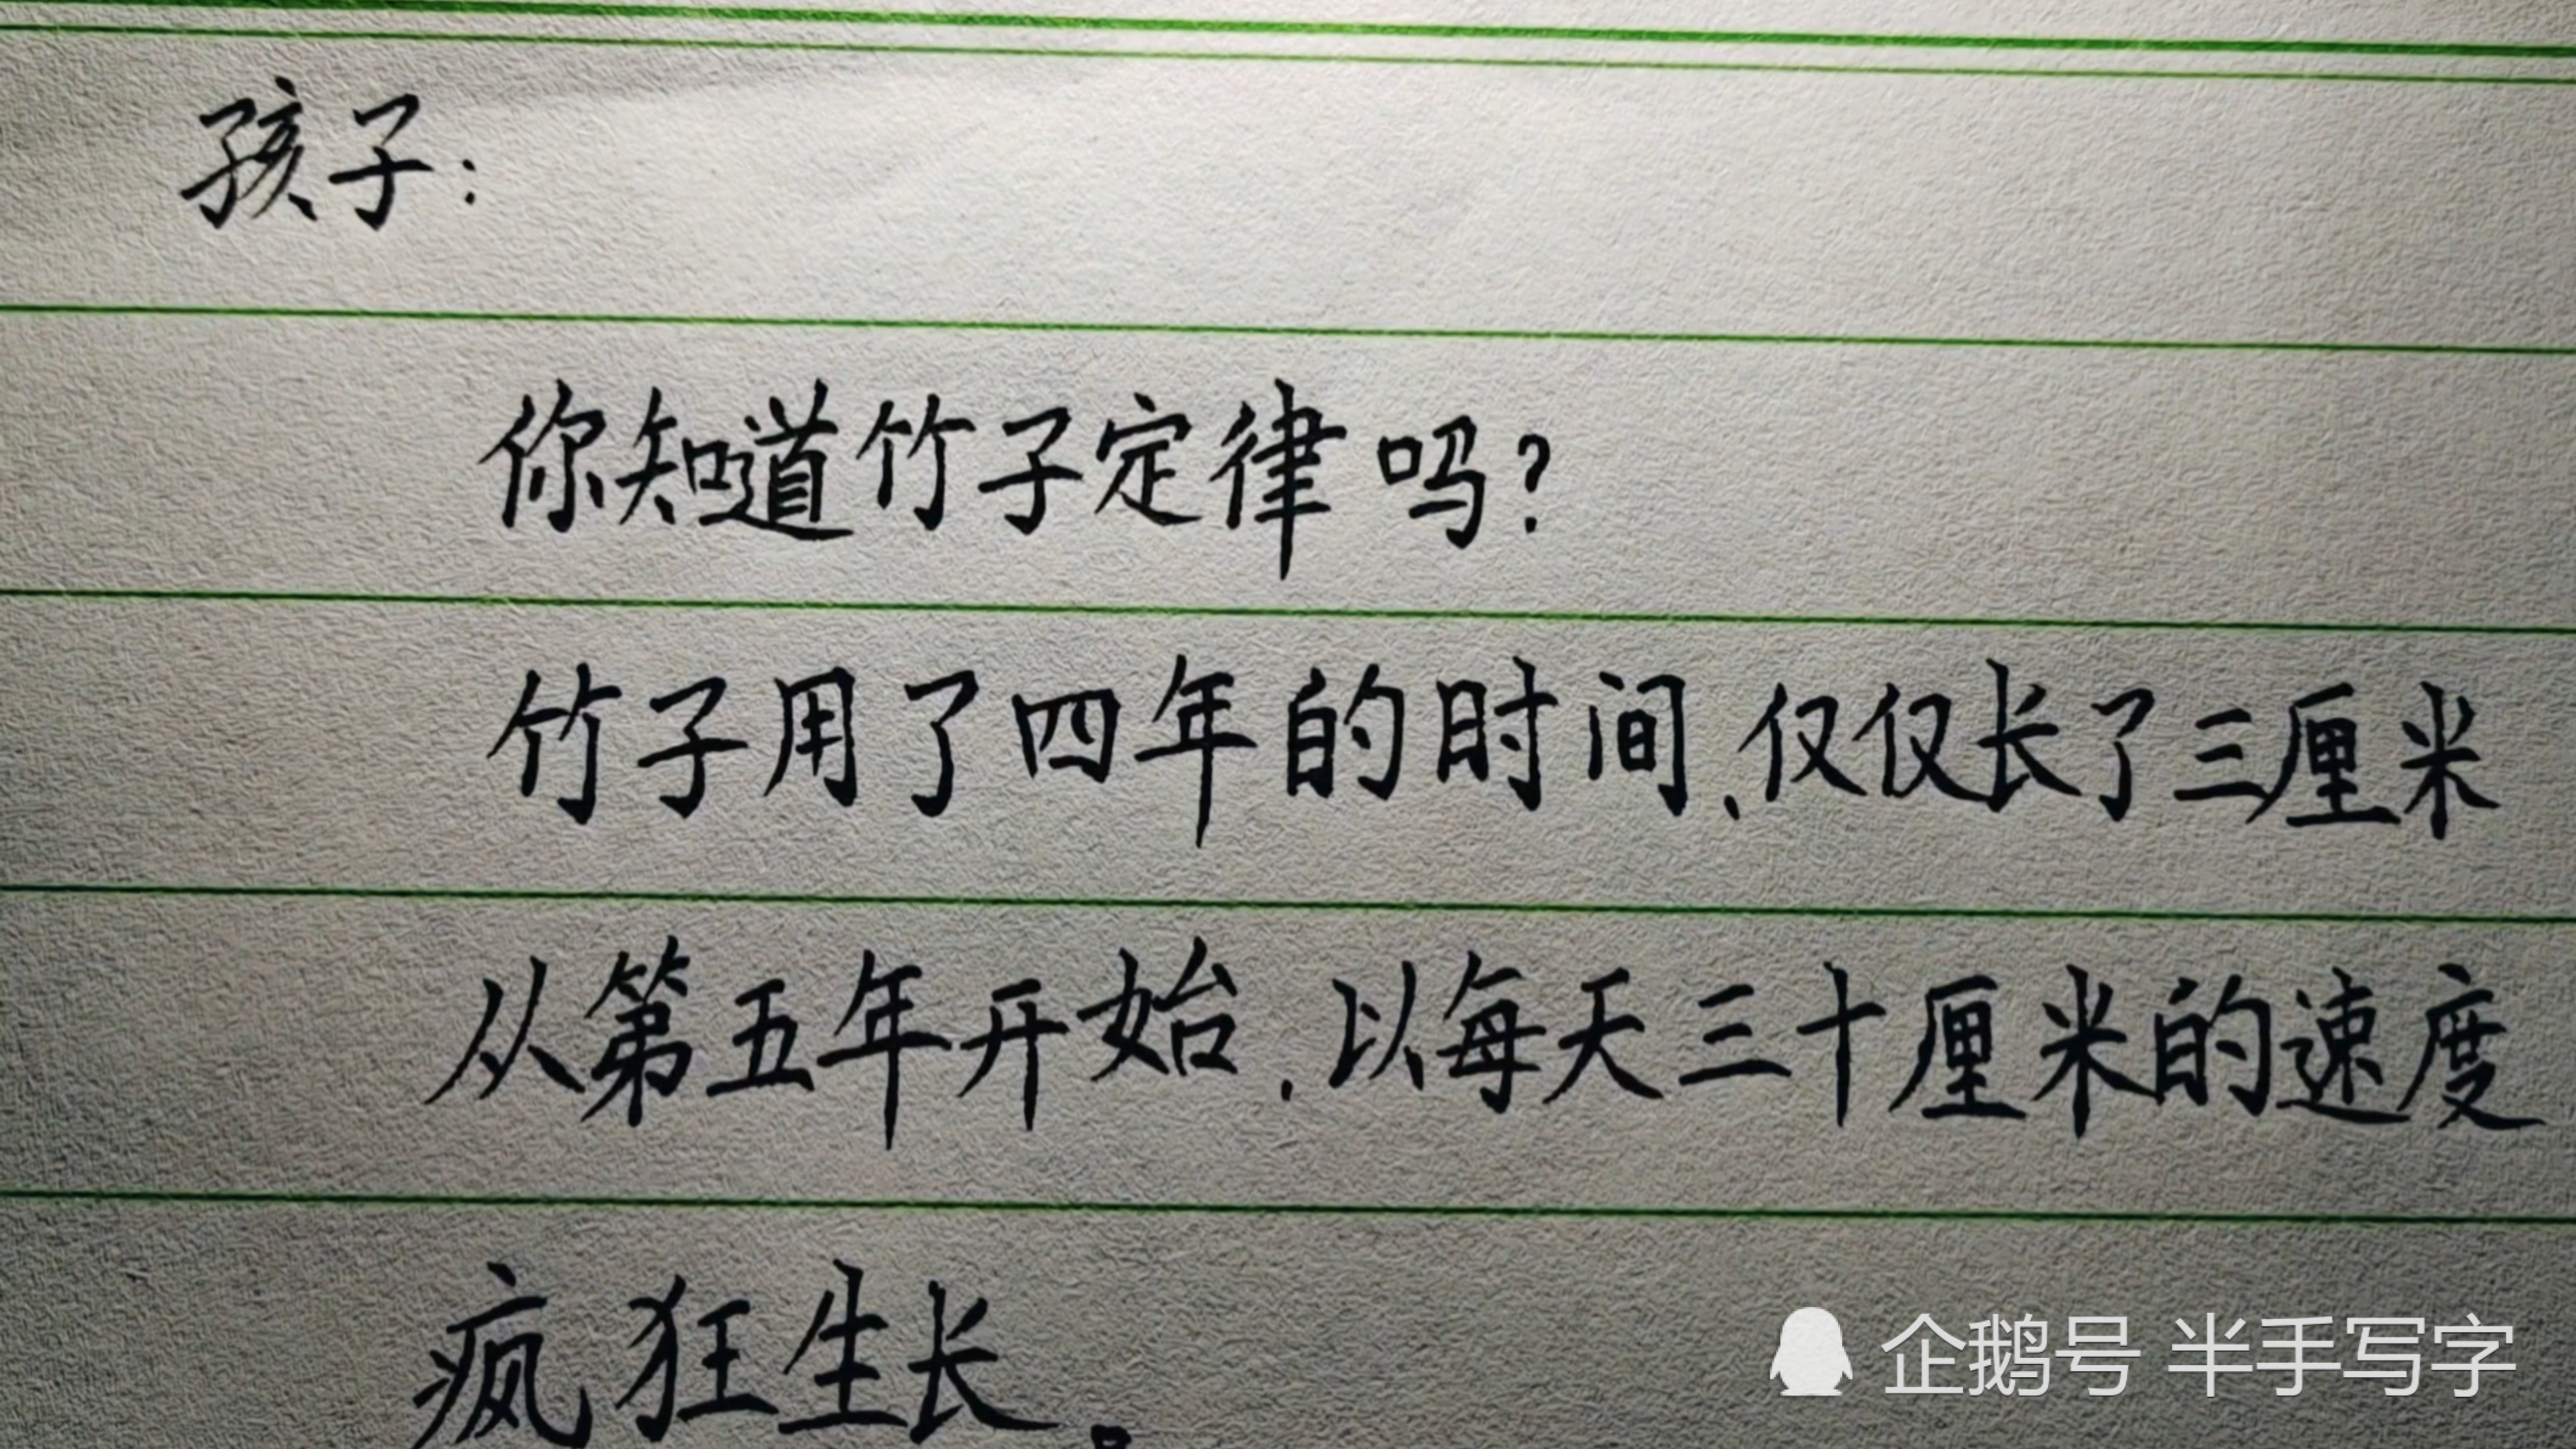 孩子：
你知道竹子定律吗？
竹子用了四年的时间、仅仅长了三厘米
从第五年开始．以每天三十厘米的速度
疯狂生长。
企鹅号 半手写字